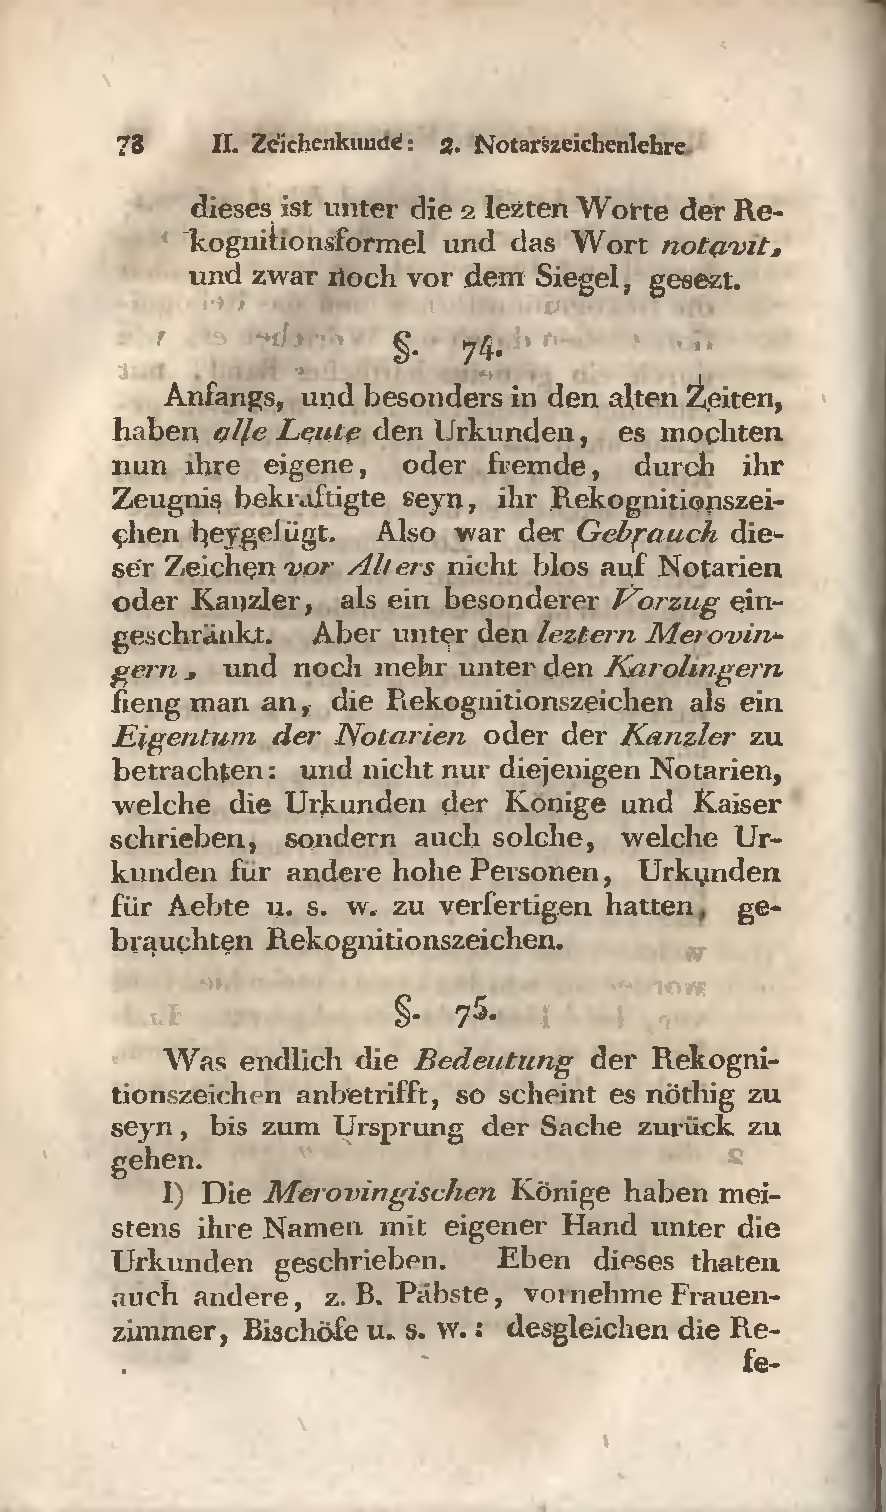 78 II. Zeichenkunde: 2. Notarszeichenlehre
dieses ist unter die 2 lezten Worte der Re-
kognitionsformel und das Wort notavit,
und zwar noch vor dem Siegel, gesezt.
§. 74.
Anfangs, und besonders in den alten Zeiten,
haben alle Leute den Urkunden, es mochten
nun ihre eigene, oder fremde, durch ihr
Zeugnis bekraftigte seyn, ihr Rekognitionszei-
chen beygefügt. Also war der Gebrauch die-
ser Zeichen vor Alters nicht blos auf Notarien
oder Kanzler, als ein besonderer Vorzug ein-
geschränkt. Aber unter den leztern Merovin-
gern, und noch mehr unter den Karolingern
fieng man an, die Rekognitionszeichen als ein
Eigentum der Notarien oder der Kanzler zu
betrachten: und nicht nur diejenigen Notarien,
welche die Urkunden der Könige und Kaiser
schrieben, sondern auch solche, welche Ur-
kunden für andere hohe Personen, Urkunden
für Aebte u. s. w. zu verfertigen hatten, ge-
brauchten Rekognitionszeichen.
§. 75.
Was endlich die Bedeutung der Rekogni-
tionszeichen anbetrifft, so scheint es nöthig zu
seyn, bis zum Ursprung der Sache zurück zu
gehen.
I) Die Merovingischen Könige haben mei-
stens ihre Namen mit eigener Hand unter die
Urkunden geschrieben. Eben dieses thaten
auch andere, z. B. Päbste, vornehme Frauen-
zimmer, Bischöfe u. s. w.: desgleichen die Re-
fe-